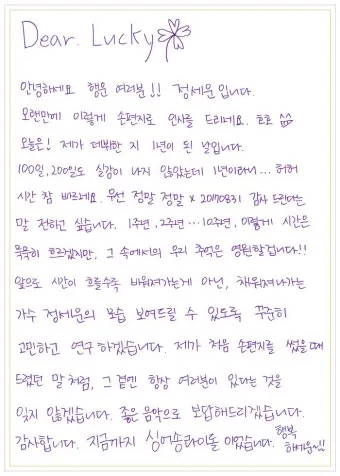 Dear. Lucky
안녕하세요 행운 여러분!! 정세운 입니다.
오랜만에 이렇게 손편지로 인사를 드리네요. 호호 ^^
오늘은! 제가 데뷔한 지 1년이 된 날입니다.
100일, 200일도 실감이 나지 않았는데 1년이라니... 허허
시간 참 빠르네요. 우선 정말 정말 x 20170831 감사 드린다는
말 전하고 싶습니다. 1주년, 2주년 ... 10주년, 이렇게 시간은
묵묵히 흐르겠지만, 그 속에서의 우리 추억은 영원할겁니다!!
앞으로 시간이 흐를수록 비워져가는게 아닌, 채워져나가는
가수 정세운의 모습 보여드릴 수 있도록 꾸준히
고민하고 연구 하겠습니다. 제가 처음 손편지를 썼을 때
드렸던 말 처럼, 그 곁엔 항상 여러분이 있다는 것을
잊지 않겠습니다. 좋은 음악으로 보답해드리겠습니다.
감사합니다. 지금까지 싱어송라이돌 이었습니다. 행복
하세운!!